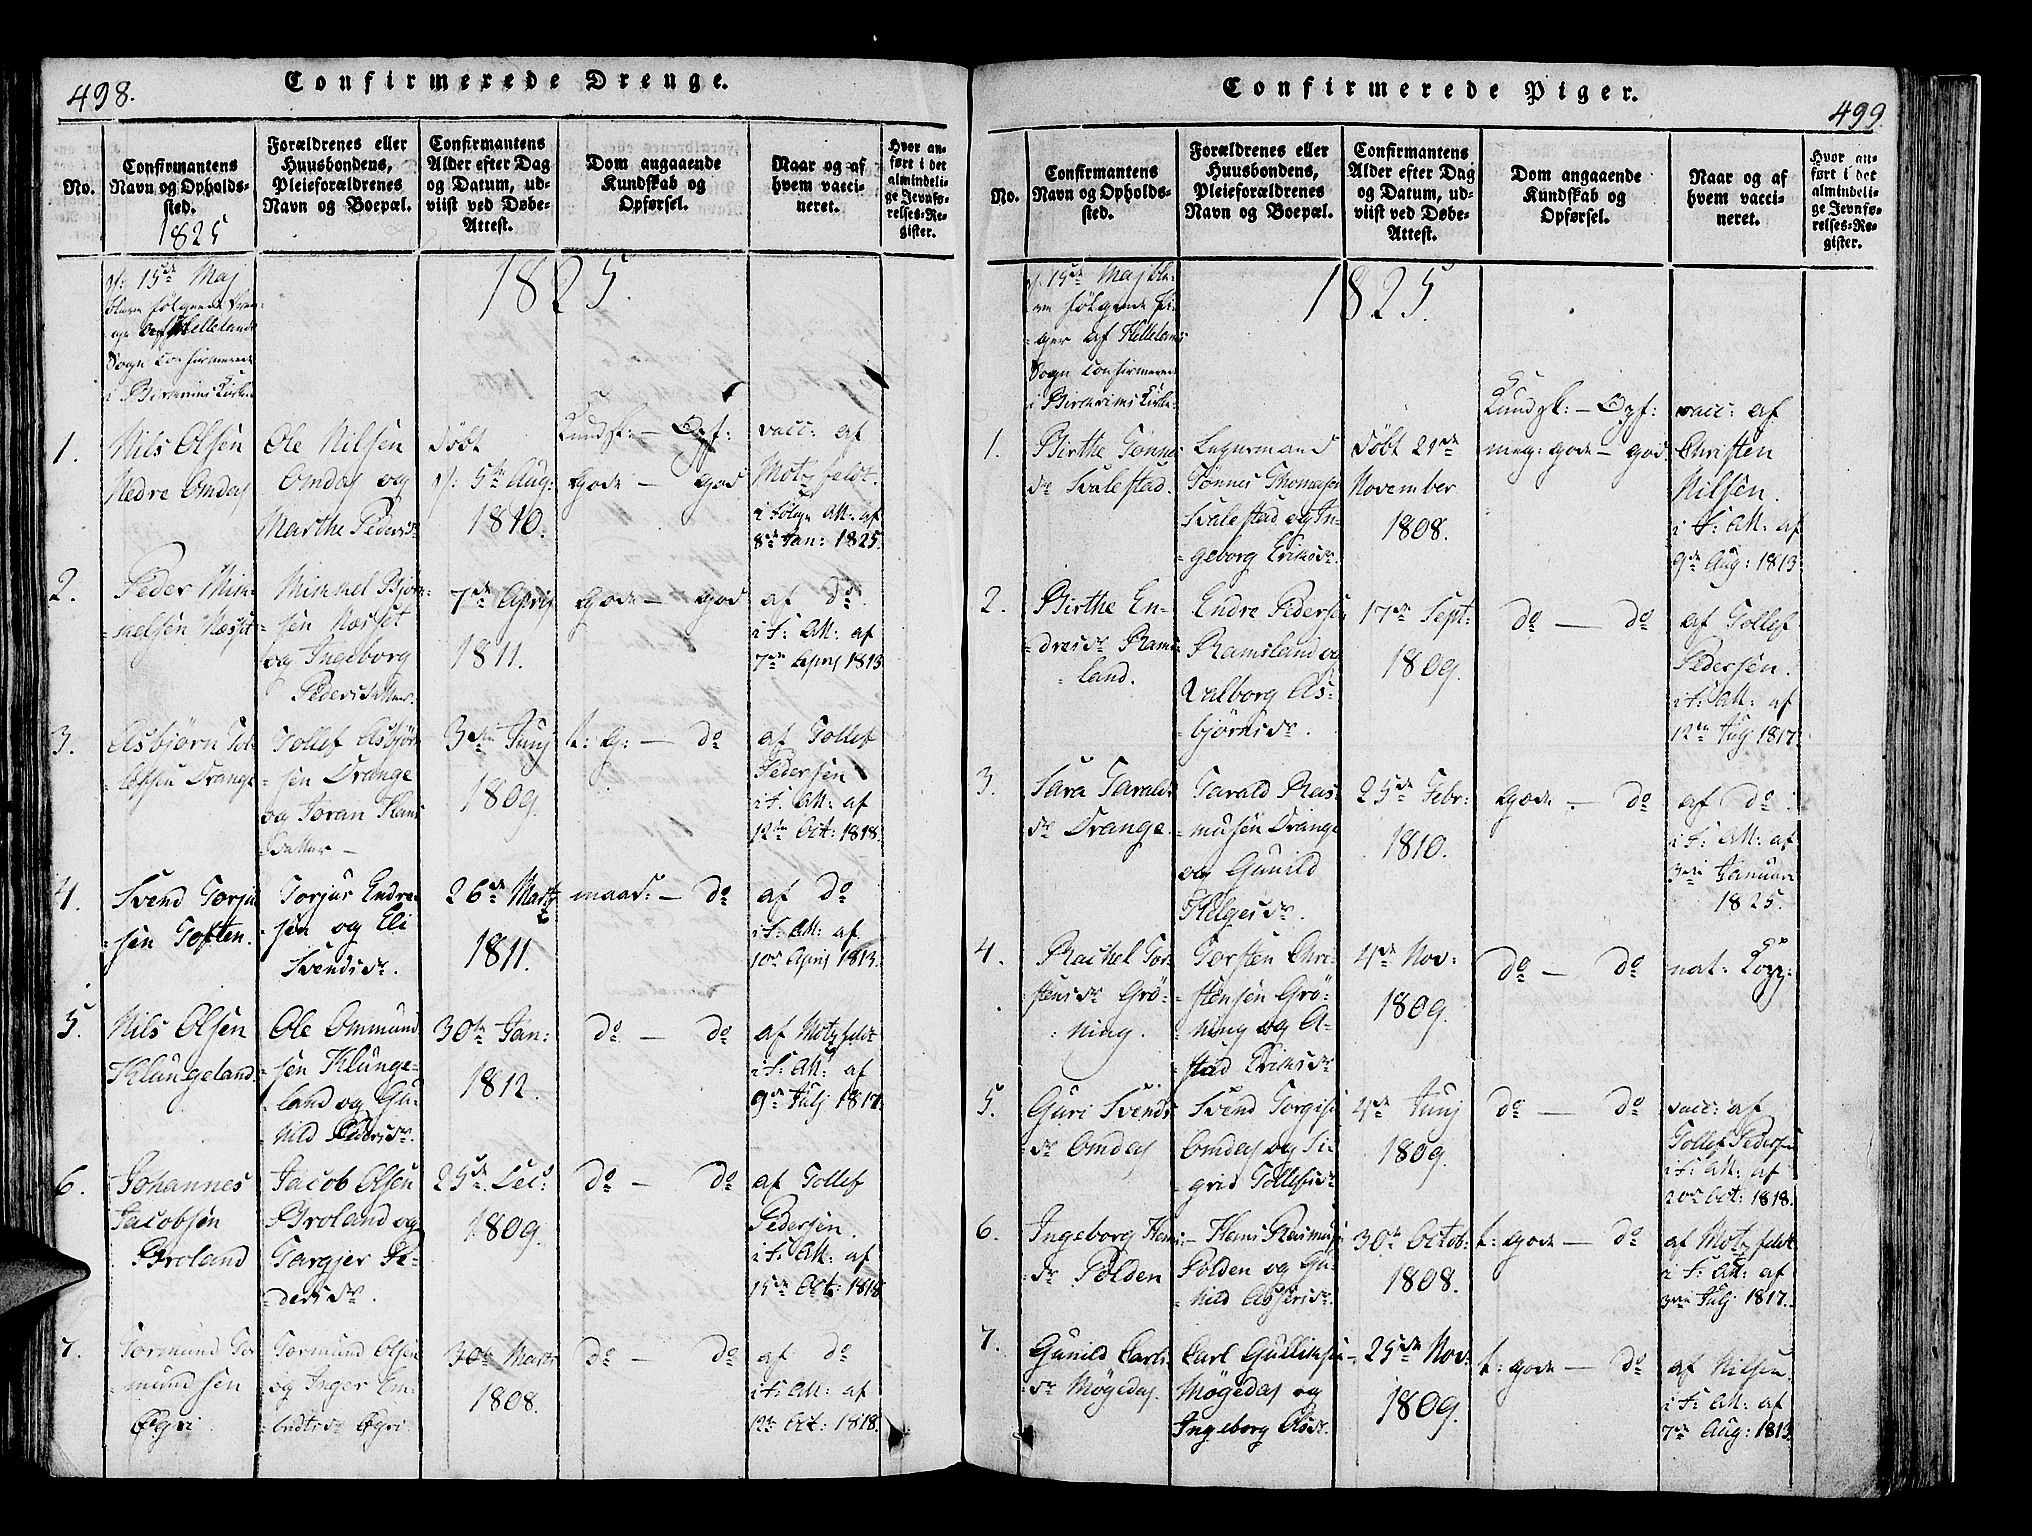 498.
Confirmerede Drenge.
No.
Confirmantens
Navn og Opholds-
sted.
1825
Forældrenes eller
Huusbondens,
Pleieforældrenes
Navn og Boepæl.
Confirmantens
Alder efter Dag
og Datum, ud-
viist ved Døbe-
Attest.
Dom angaaende
Kundskab og
Opførsel.
Naar og af
hvem vacci-
neret.
Hvor an-
ført i det
almindeli-
ge Jevnfø-
relses-Re-
gister.
15de Maj
følgende Dren-
ge af Hellelands
Sogn Confirmerede
i Bierkrims Kirke
1825.
Kundsk: — Opf:
1.
Nils Olsen
Nedre Omdal
Ole Nilsen
Omdal og
Marthe Pedersdr
døbt
5te Aug:
1810.
gode — god
vacc: af
Motzfeldt
i Følge Att: af
8de Jan: 1825.
2.
Peder Mim-
melsen Næsset
Mimmel Bjørn-
sen Næsset
og Ingeborg
Pedersdatter
7de April
1811.
gode — god
af do
i F: Att: af
7de April 1813
3.
Asbjørn Tol-
lefsen Drange
Tollef Asbjørn-
sen Drange
og Joran Hans
datter —
3de Junj
1809.
t: g: — do
af Tollef
Pedersen
i F: Att: af
12te Oct: 1818.
4.
Svend Torju-
sen Toften.
Torjus Endre-
sen og Eli
Svendsdr.
26de Marts
1811.
maad: — do
af do
i F: Att: af
10de April 1813.
5.
Nils Olsen
Klungeland.
Ole Ommund-
sen Klunge-
land og Gu-
nild Pedersdr.
30te Jan:
1812.
do — do
af Motzfeldt
i F: Att: af
9de Julj 1817.
6.
Johannes
Jacobsen
Broland
Jacob Olsen
Broland og
Targjer Pe-
dersdr.
25de Dec:
1809.
do — do
af Tollef
Pedersen.
i F: Att: af
15de Oct: 1818
7.
Tormund Tor-
mundsen
Øgri
Tormund Olsen
og Inger Em-
Øgri.
30te Marts
1808.
do — do
af do
i F: Att: af
12te Oct: 1818.
Confirmerede Piger.
499.
No.
Confirmantens
Navn og Opholds-
sted.
Forældrenes eller
Huusbondens,
Pleieforældrenes
Navn og Boepæl.
Confirmantens
Alder efter Dag
og Datum, ud-
viist ved Døbe-
Attest.
Dom angaaende
Kundskab og
Opførsel.
Naar og af
hvem vacci-
neret.
Hvor an-
ført i det
almindeli-
ge Jevnfø-
relses-Re-
gister.
15de Maj ble-
ve følgende Pi-
ger af Hellelands
Sogn Confirmerede
i Bierkrims Kirke.
1825.
Kundsk: — Opf:
1.
Birthe Tønnes-
dr Svalestad.
Legermand
Tønnes Thomasen
Svalestad og In-
geborg Eriksdr.
døbt 21de
November
1808.
meg: gode — god
vacc: af
Christen
Nilsen.
i F: Att: af
9de Aug: 1813
2.
Birthe En-
dresdr Rams-
land.
Endre Pedersen
Ramsland og
Valborg As-
bjørnsdr.
17de Sept:
1809.
do — do
af Tollef
Pedersen.
i F: Att: af
12te Julj 1817.
3.
Sara Tarald-
dr Drange.
Tarald Ras-
musen Drange
og Gunild
Helgesdr.
25de Febr:
1810.
gode — do
af do.
i F: Att: af
3die Januar
1825.
4.
Rachel Tor-
stensdr Grö-
ning.
Torsten Chri-
stensen Grö-
ning og A-
stad Eriksdr
4de Nov:
1809.
do — do
nat: Kopp:
5.
Guri Svends-
dr Omdal
Svend Torgis
Omdal og Si-
grid Tollefsdr
4de Junj
1809.
do — do
vacc: af
Tollef Pedersen
i F: Att: af
20de Oct: 1818.
6.
Ingeborg Hans-
dr Polden
Hans Rasmus
Polden og Gu-
nild Assersdr.
30te Octob:
1808.
t: gode — do
af Motzfeldt
i F: Att: af
3die Julj 1817.
7.
Gunild Carls-
dr Møgedal.
Carl Gullik
Møgedal og
Ingeborg Olsdr.
25de Nov:
1809.
t: gode — do
af Nilsen.
i F: Att: af
7de Aug: 1813.